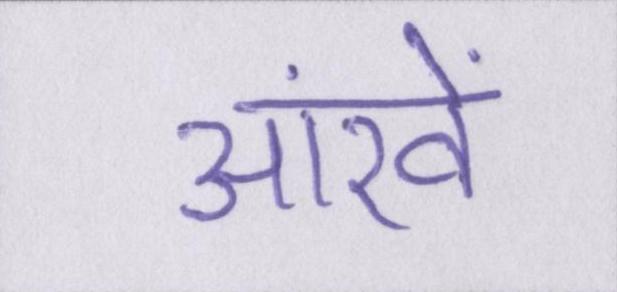 आंखें